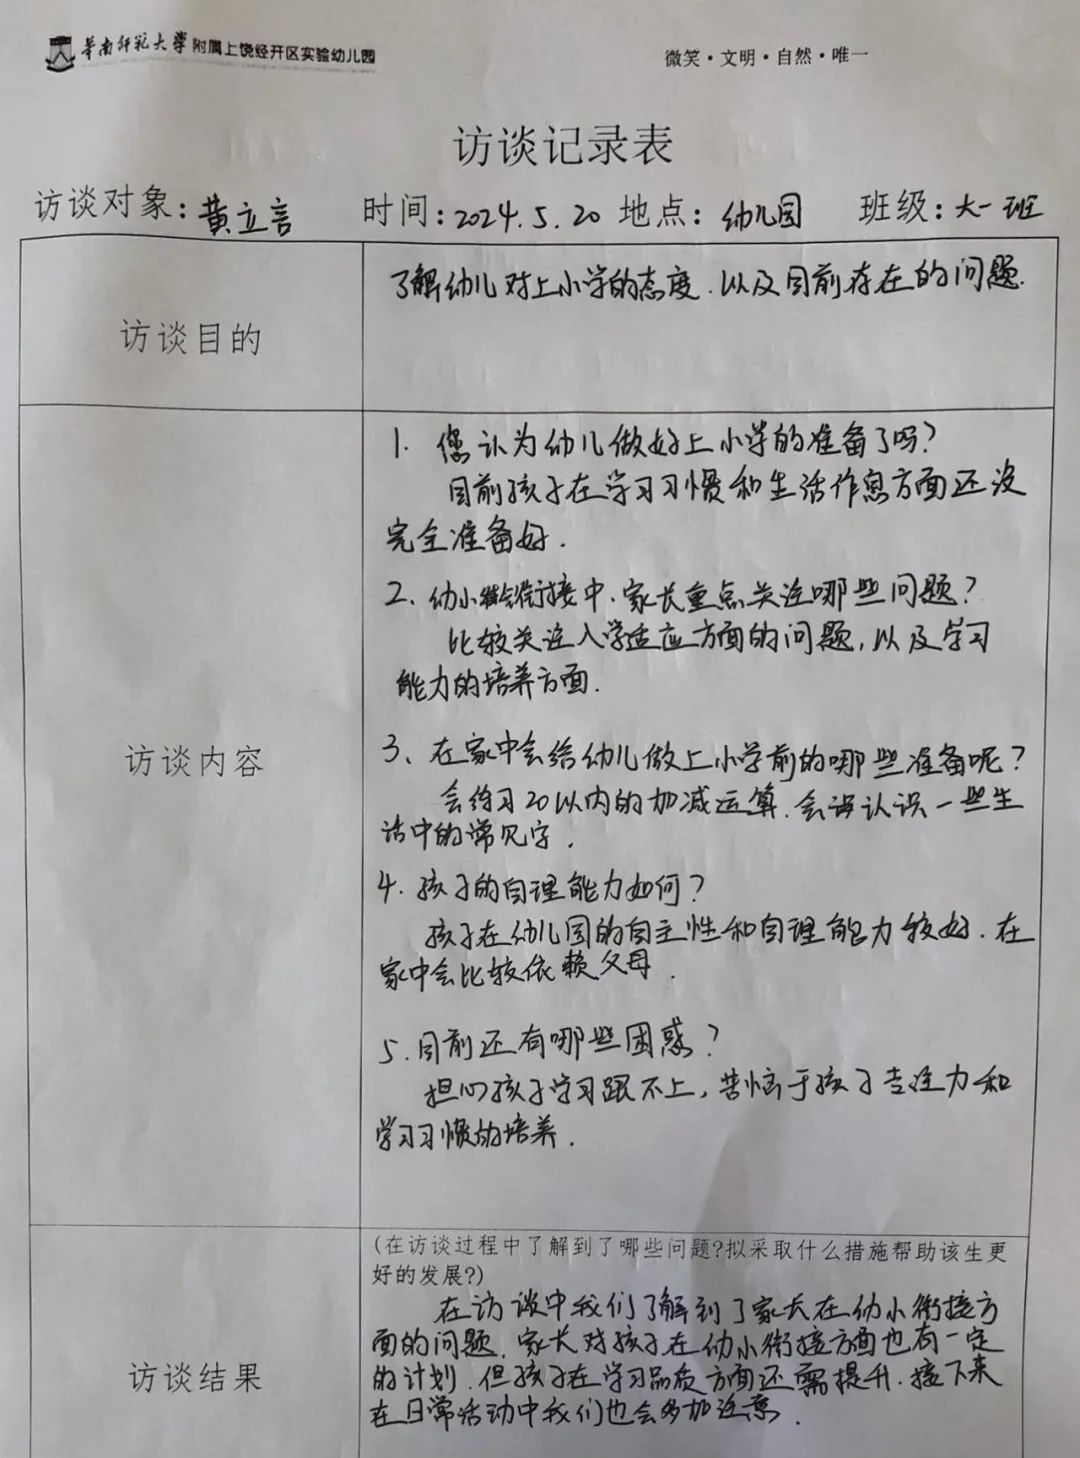 华南师范大学附属上饶经开区实验幼儿园
微笑·文明·自然·唯一
访谈记录表
访谈对象：黄立言 时间：2024.5.20 地点：幼儿园 班级：大一班
访谈目的
了解幼儿对上小学的态度.以及目前存在的问题.
访谈内容
1. 您认为幼儿做好上小学的准备了吗？
目前孩子在学习习惯和生活作息方面还没
完全准备好.
2、幼小衔接中.家长重点关注哪些问题？
比较关注入学适应方面的问题,以及学习
能力的培养方面.
3、在家中会给幼儿做上小学前的哪些准备呢？
会练习20以内的加减运算.会认识一些生
活中的常见字.
4. 孩子的自理能力如何？
孩子在幼儿园的自主性和自理能力较好.在
家中会比较依赖父母.
5.目前还有哪些困惑？
担心孩子学习跟不上,苦恼于孩子专注力和
学习习惯的培养.
访谈结果
(在访谈过程中了解到了哪些问题?拟采取什么措施帮助该生更
好的发展?)
在访谈中我们了解到了家长在幼小衔接方
面的问题.家长对孩子在幼小衔接方面也有一定
的计划.但孩子在学习品质方面还需提升.接下来
在日常活动中我们也会多加注意.